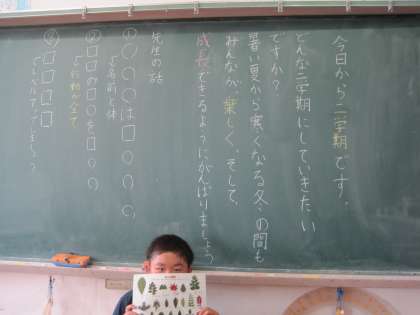 今日から二学期です。
どんな二学期にしていきたい
ですか？
暑い夏から寒くなる冬の間も
みんなが、楽しく、そして、
成長できるようにがんばりましょう
先生の話
①〇〇は□〇〇。
↳名前と体
②□□の□を□〇〇
↳行動が全て
③□□□□
↳レベルアップしよう